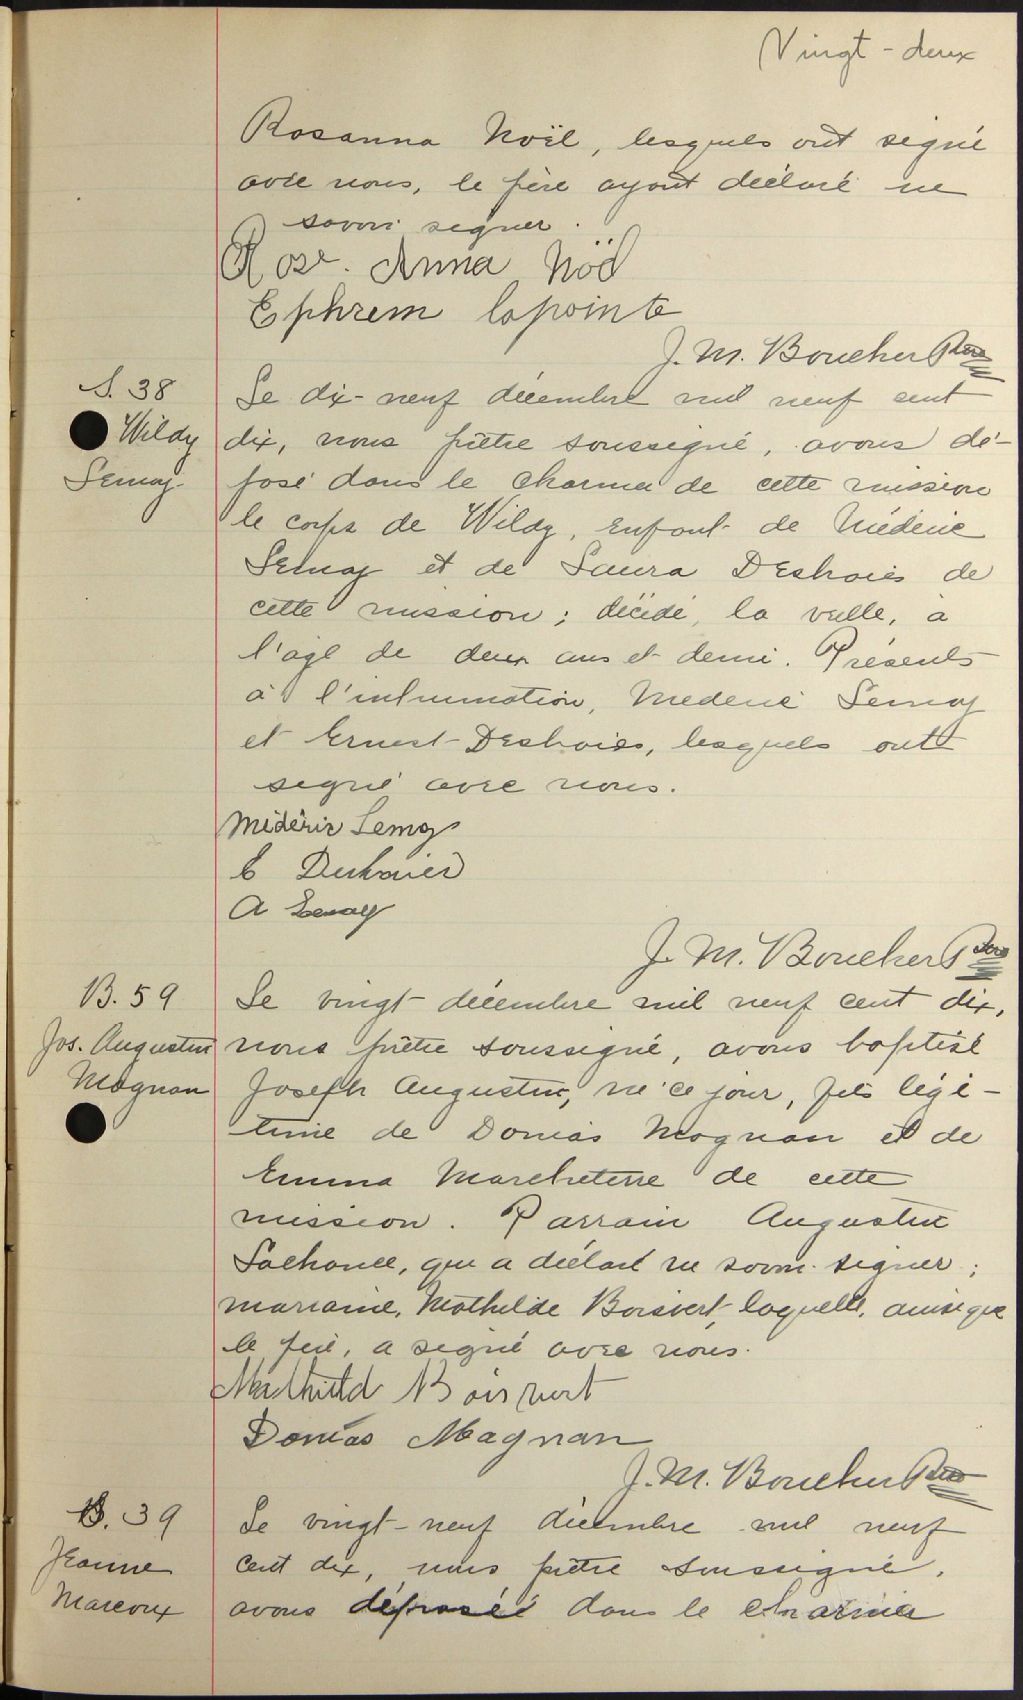 Vingt-deux
Rosanna Noël, lesquels ont signé
avec nous, le père ayant déclaré ne
savoir signer.
Rose. Anna Noël
Ephrem lapointe
J. M. Boucher Ptre
S. 38
Wildy
Lemay
Le dix-neuf décembre mil neuf cent
dix, nous prêtre soussigné, avons dé-
posé dans le charnier de cette mission
le corps de Wildy, enfant de Médéric
Lemay et de Laura Deshaies de
cette mission; décédé, la veille, à
l'âge de deux ans et demi. Présents
à l'inhumation, Mederic Lemay
et Ernest Deshaies, lesquels ont
signé avec nous.
Médéric Lemay
E Deshaies
A Lemay
J. M. Boucher Ptre
B. 59
Jos. Augustin
Magnan
Le vingt décembre mil neuf cent dix,
nous prêtre soussigné, avons baptisé
Joseph Augustin, né ce jour, fils légi-
time de Domias Magnan et de
Emma Marcheterre de cette
mission. Parrain Augustin
Lachance, qui a déclaré ne savoir signer;
marraine, Mathilde Boisvert, laquelle, ainsi que
le père, a signé avec nous.
Mathild Boisvert
Domias Magnan
J. M. Boucher Ptre
S. 39
Jeanne
Marcoux
Le vingt-neuf décembre mil neuf
cent dix, nous prêtre soussigné,
avons déposé dans le charnier